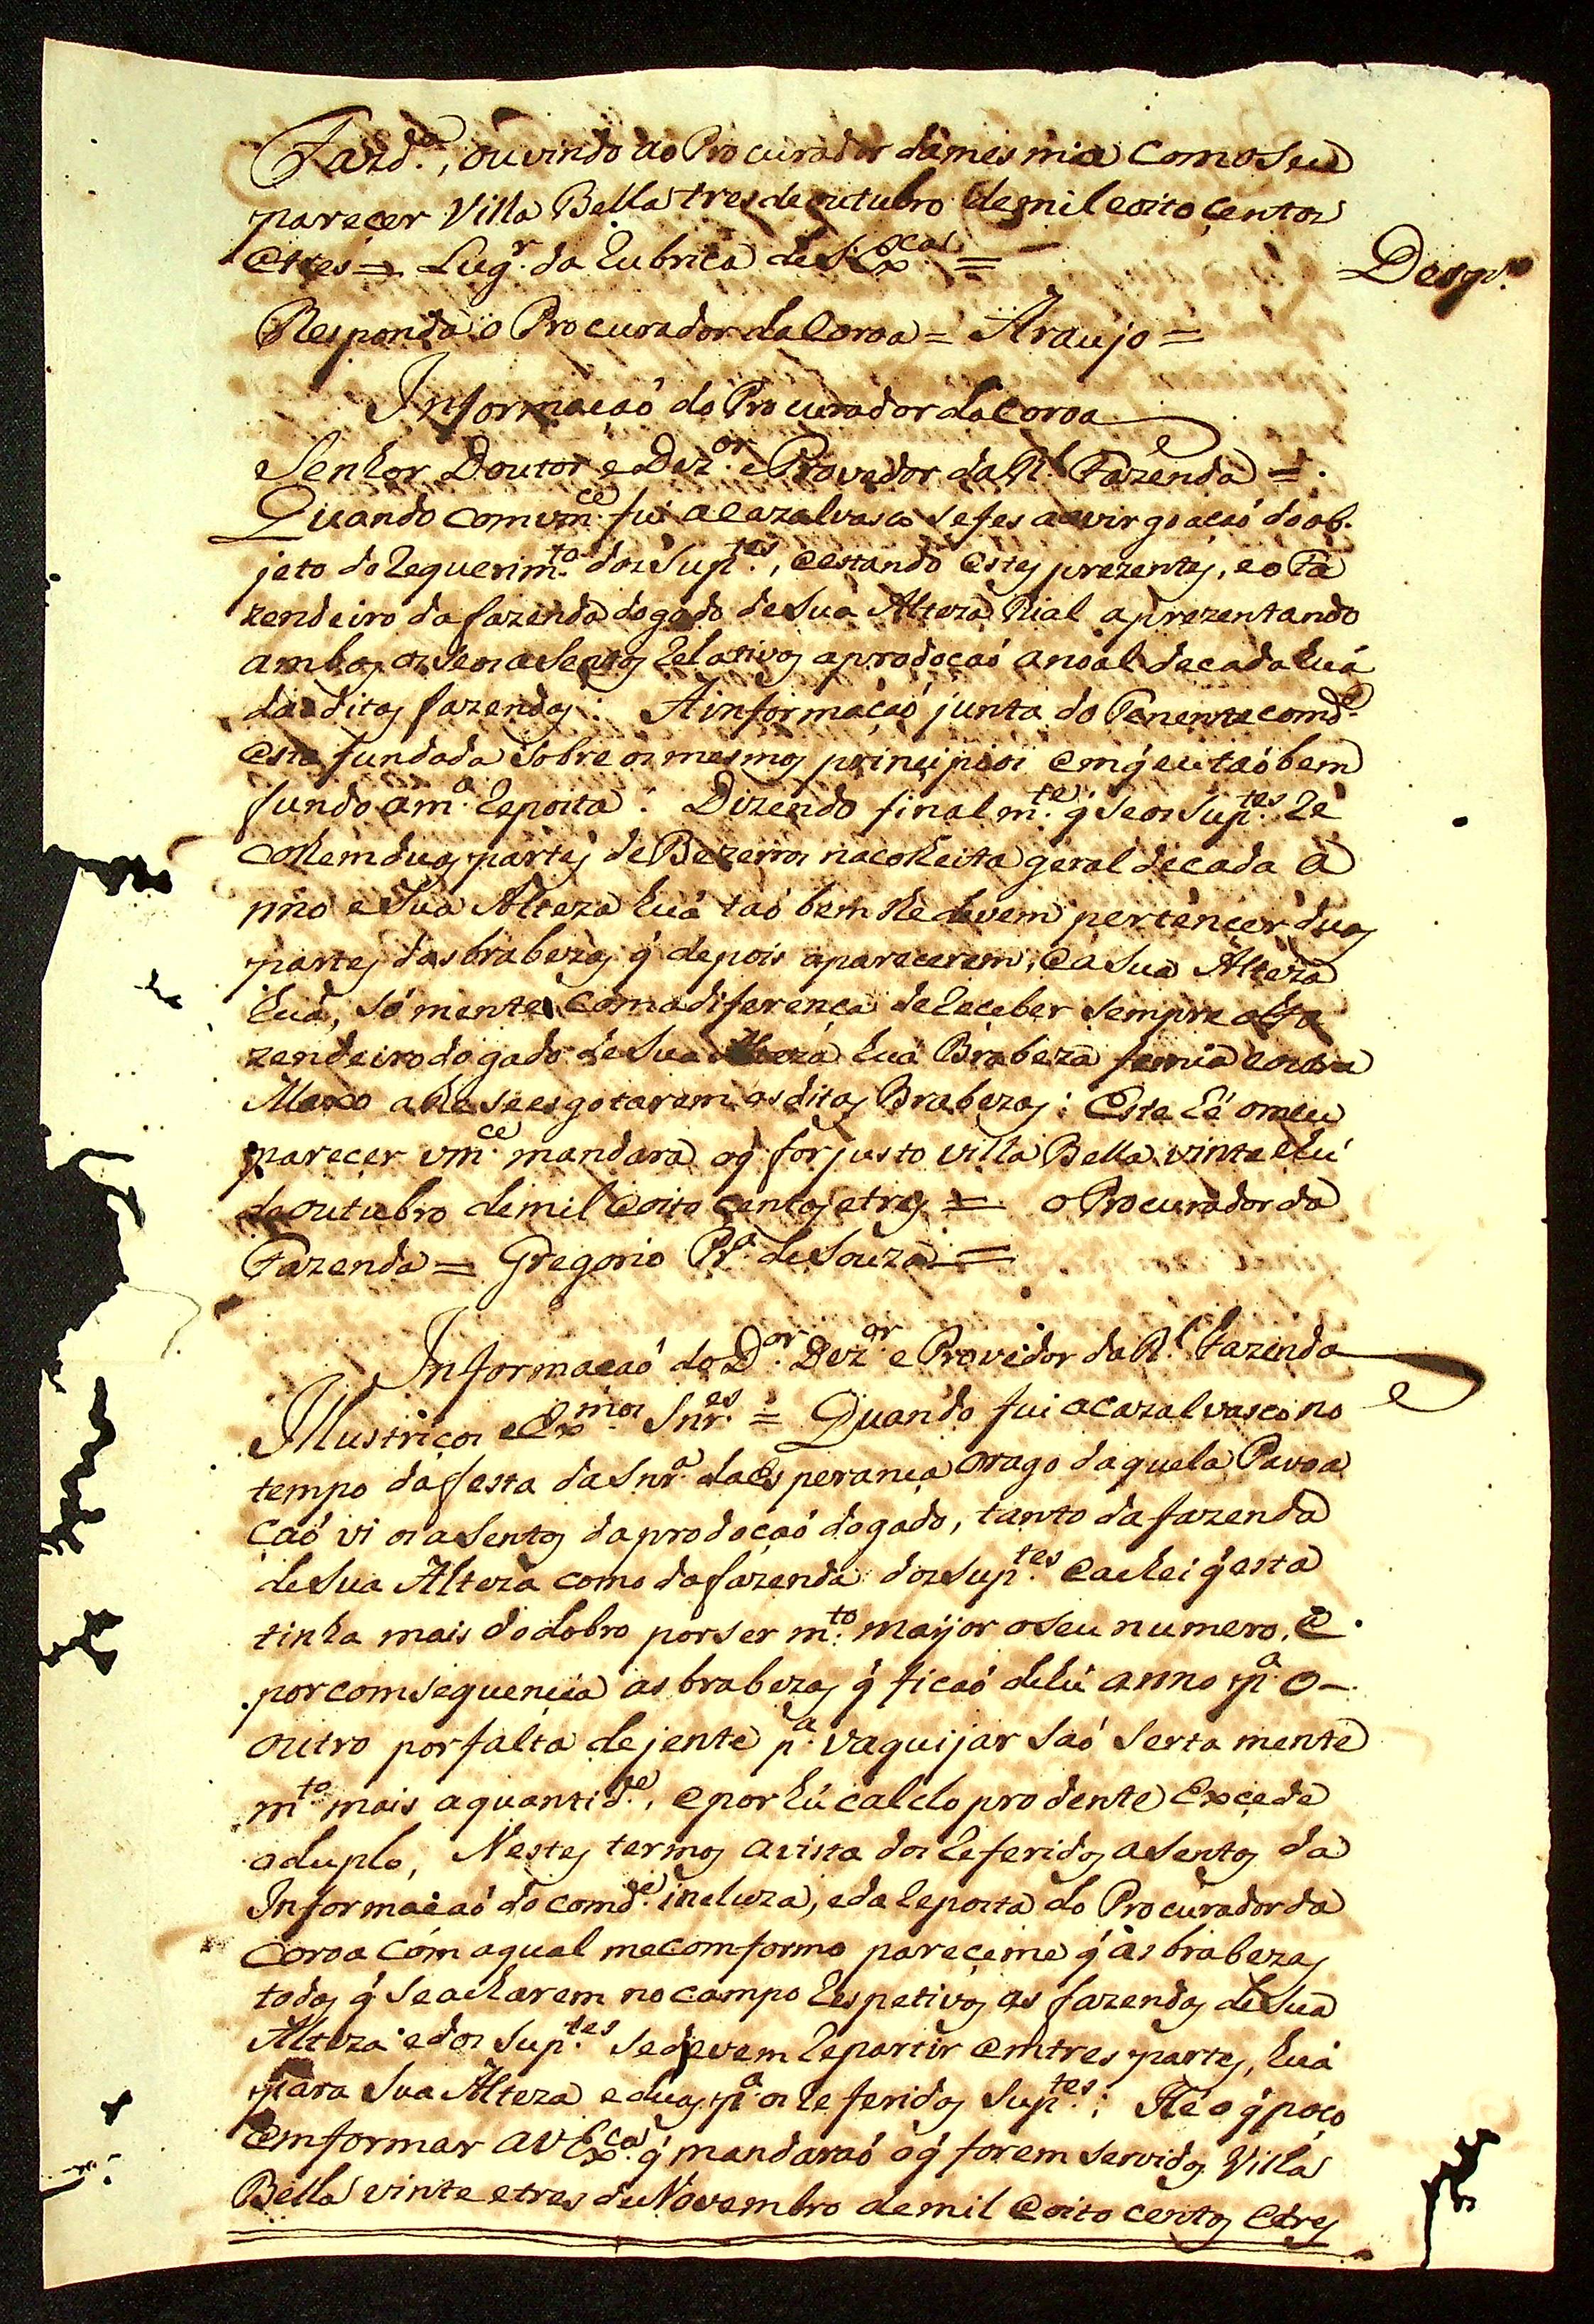 Fazd.ª, ouvindo ao Procurador damesmia Comoseu
parecer Villa Bella tres de outubro demil eoito çentos
etres = Lugr. da Rubrica de S. Excas =
Despº.
Responda o Procurador da Coroa = Araujo =
Informaçaó do Procurador da Coroa
Senhor Doutor e Dez.or e Provedor da Rl. Fazenda =
Quando com vm.ce fui a Cazalvasco se fes a avirgoaçaó do ob-
jeto do Requerim.to dos Sup.tes, e estando estes prezentes, e o Fa
zendeiro da fazenda do gado de Sua Alteza Rial aprezentando
ambos os seos asentos Relativos a prodoçaó anoal de cada huá
das ditas fazendas: A informaçaó junta do Tenente comd.e
esta fundada sobre os mesmos principios em q̃ eu taóbem
fundo a m.ª Reposta: Dizendo final m.te q̃ se os Sup.tes Re
colhem duas partes de Bezerros na colheita geral de cada a
nno e Sua Alteza huá taó bem lhe devem pertençer duas
partes das brabezas q̃ depois aparecerem, e a Sua Alteza
huá, só mente com a diferença de Reçeber sempre o Fa
zendeiro do gado de Sua Alteza huá Brabeza femia e outra
Maxo athe se esgotarem as ditas Brabezas: Este hé o meu
parecer vm.ce mandara o q̃ for justo Villa Bella vinte e hú
de outubro demil e oito çentos e tres = o Procurador da
Fazenda = Gregorio Prª. de Souza =
Informaçaó do D.or Dez.or e Provedor da Rl. Fazenda
Illustriços e Ex.mos Snr.es = Quando fui a cazalvasco no
tempo da festa da Snr.ª da Esperança orago daquela Pavoa
çaó vi os asentos da prodoçaó do gado, tanto da fazenda
de Sua Alteza como da fazenda dos Sup.tes e achei q̃ esta
tinha mais do dobro por ser m.to maýor o seu numero, e
por comsequencia as brabezas q̃ ficaó de hú anno p.ª o
outro por falta de jente p.ª vaquijar saó serta mente
m.to mais a quantid.e, e por hú calclo prodente Exçede
a duplo, Nestes termos a vista dos Referidos asentos da
Informaçaó do comd.e incluza, e da Reposta do Procurador da
Coroa com a qual me comformo pareçeme q̃ as brabezas
todas q̃ se acharem no campo Respetivos as fazendas de Sua
Alteza e dos Sup.tes se devem Repartir em tres partes, huá
para Sua Alteza e duas p.ª os Referidos Sup.tes: Hé o q̃ poço
emformar a V Ex.cas q̃ mandaraó o q̃ forem servidos Villa
Bella vinte e tres de Novembro demil e oito centos e tres